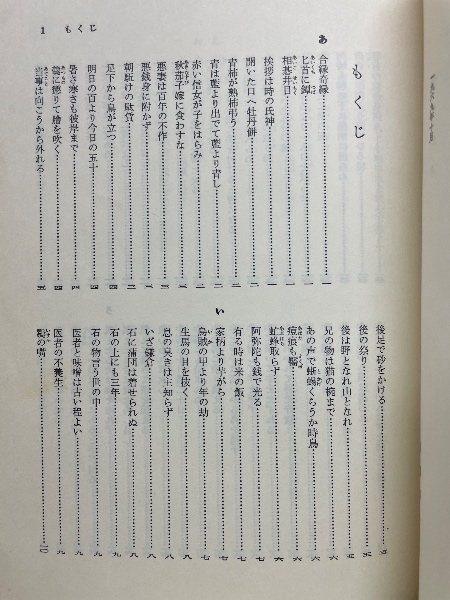 1 もくじ
もくじ
あ
合縁奇縁……一
匕首に鍔……一
相碁井目……一
挨拶は時の氏神……一
開いた口へ牡丹餅……二
青柿が熟柿弔う……二
青は藍より出でて藍より青し……二
赤い信女が子をはらみ……二
秋茄子嫁に食わすな……三
悪妻は百年の不作……三
悪銭身に附かず……三
朝駆けの駄賃……三
足下から鳥が立つ……四
明日の百より今日の五十……四
暑さ寒さも彼岸まで……四
羹に懲りて膾を吹く……四
当事は向こうから外れる……五
後足で砂をかける……五
後の祭り……五
後は野となれ山となれ……五
兄の物は猫の椀まで……六
あの声で蜥蜴くらうか時鳥……六
痘痕も靨……六
虻蜂取らず……六
阿弥陀も銭で光る……六
有る時は米の飯……七
い
家柄より芋がら……七
烏賊の甲より年の劫……七
生馬の目を抜く……八
息の臭きは主知らず……八
いざ鎌倉……八
石に蒲団は着せられぬ……九
石の上にも三年……九
石の物言う世の中……九
医者と味噌は古い程よい……九
医者の不養生……九
鶍の嘴……一〇